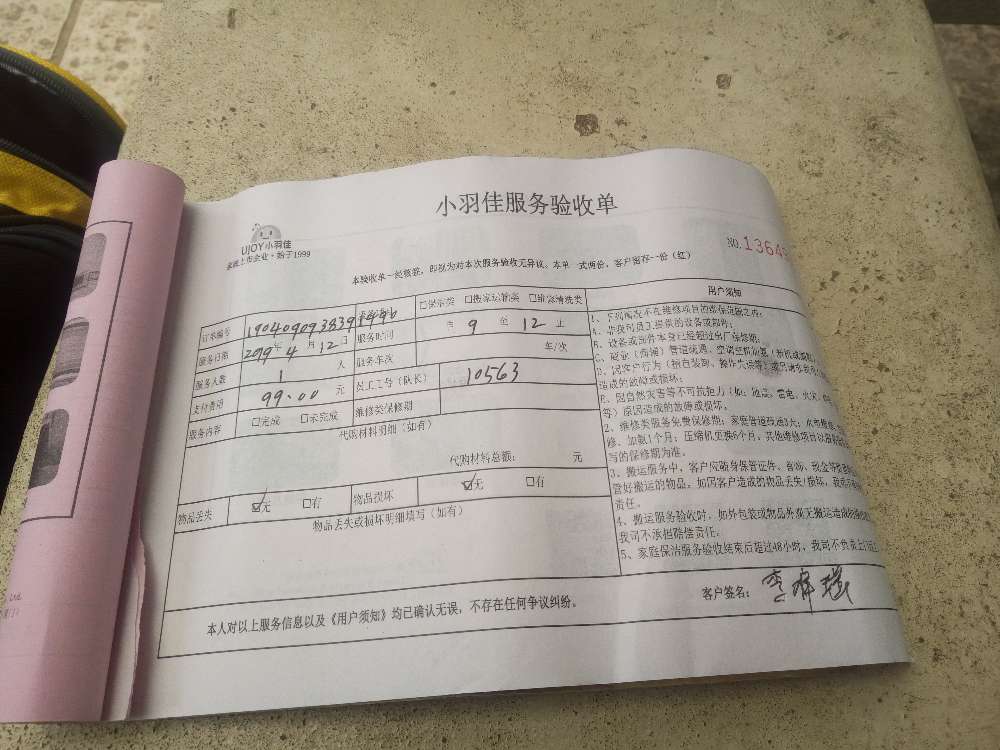 小羽佳服务验收单
UJOY小羽佳
家庭上市企业·始于1999
NO.1364
本验收单一经签署,即视为对本次服务验收无异议。本单一式两份,客户留存一份(红)
订单编号
□保洁类 □搬家运输类 □维修清洗类
服务日期 2019年4月12日 服务时间 自9至12止
服务人数 1人 服务车次 车/次
支付费用 99.00元 员工工号(队长) 10563
服务内容 □完成 □未完成 维修类保修期
代购材料明细(如有)
代购材料总额: 元
物品丢失 ☑无 □有 物品损坏 ☑无 □有
物品丢失或损坏明细填写(如有)
本人对以上服务信息以及《用户须知》均已确认无误,不存在任何争议纠纷。
用户须知
1、下列情况不在维修项目的维保范围之内:
A、非我司员工提供的设备或部件;
B、设备或部件本身已经超过出厂保修期;
造成的故障或损坏;
E、因自然灾害等不可抗拒力(如:地震、雷电、火灾、
等)原因造成的故障或损坏。
2、维修类服务免费保修期:家庭管道疏通3天;
修、加氟1个月;压缩机更换6个月,其他维修项目以服务
写的保修期为准。
3、搬运服务中,客户应随身保管证件、首饰、现金等
管好搬运的物品,如因客户造成的物品丢失/损坏,我司不
责任。
4、搬运服务验收时,如外包装或物品外观无搬运造成
我司不承担赔偿责任。
5、家庭保洁服务验收结束后超过48小时,我司不负责
客户签名: